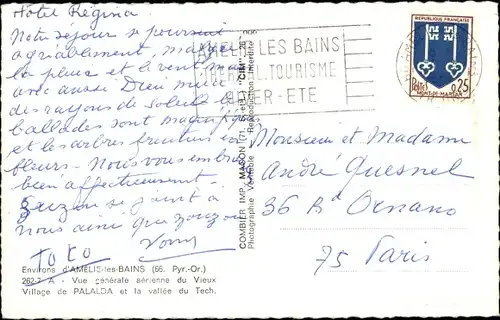 Hôtel Régina
Notre séjour se poursuit
agréablement, malgré
la pluie et le vent, mais
avec aussi Dieu merci
des rayons de soleil. Les
ballades sont magnifiques
et les arbres fruitiers en
fleurs - Nous vous embrassons
bien affectueusement.
Suzon se joint à
nous ainsi que
Toto
Environs d'AMÉLIE-les-BAINS (66. Pyr.-Or.)
262-7 A - Vue générale aérienne du Vieux
Village de PALALDA et la vallée du Tech.
COMBIER IMP. MACON (71. S.-et-L.) "CIM"
Photographie Véritable Reproduction interdite
AMÉLIE LES BAINS
THERMAL-TOURISME
HIVER-ETE
REPUBLIQUE FRANÇAISE
POSTES 0,25
MONT-DE-MARSAN
Monsieur et Madame
André Quesnel
36 Bd Ornano
75 Paris